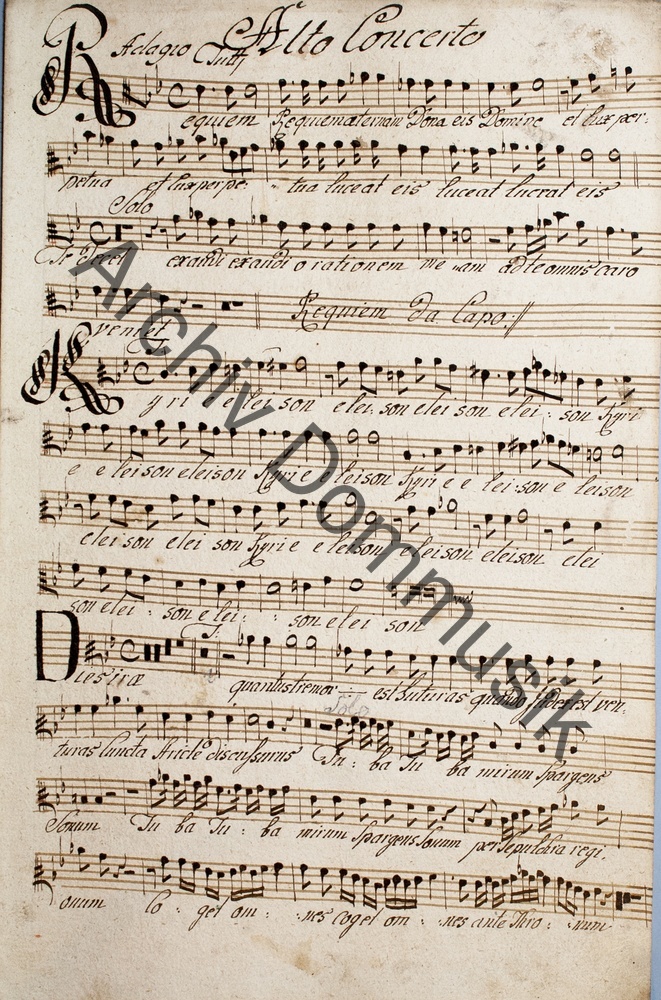 Alto Concerto
Adagio Tutti
Requiem Requiem æternam Dona eis Domine et lux per-
petua et lux perpe- tua luceat eis luceat luceat eis
Solo
Te Decet exaudi exaudi orationem me am ad te omnis caro
veniet Requiem Da Capo
T.
Kyri e elei son elei son elei son elei son Kyri
e e leison eleison Kyri e e leison Kyri e e lei son e leison
elei son elei son Kyri e e leison eleison eleison elei
son elei son e lei son elei son
T.
Dies iræ quantus tremor est futurus quando judex est ven-
Solo
turus cuncta stricte discussurus Tu ba Tu ba mirum spargens
Sonum Tu ba Tu ba mirum spargens sonum per sepulchra regi
onum co get om nes coget om nes ante Thro num
Archiv Dommusik